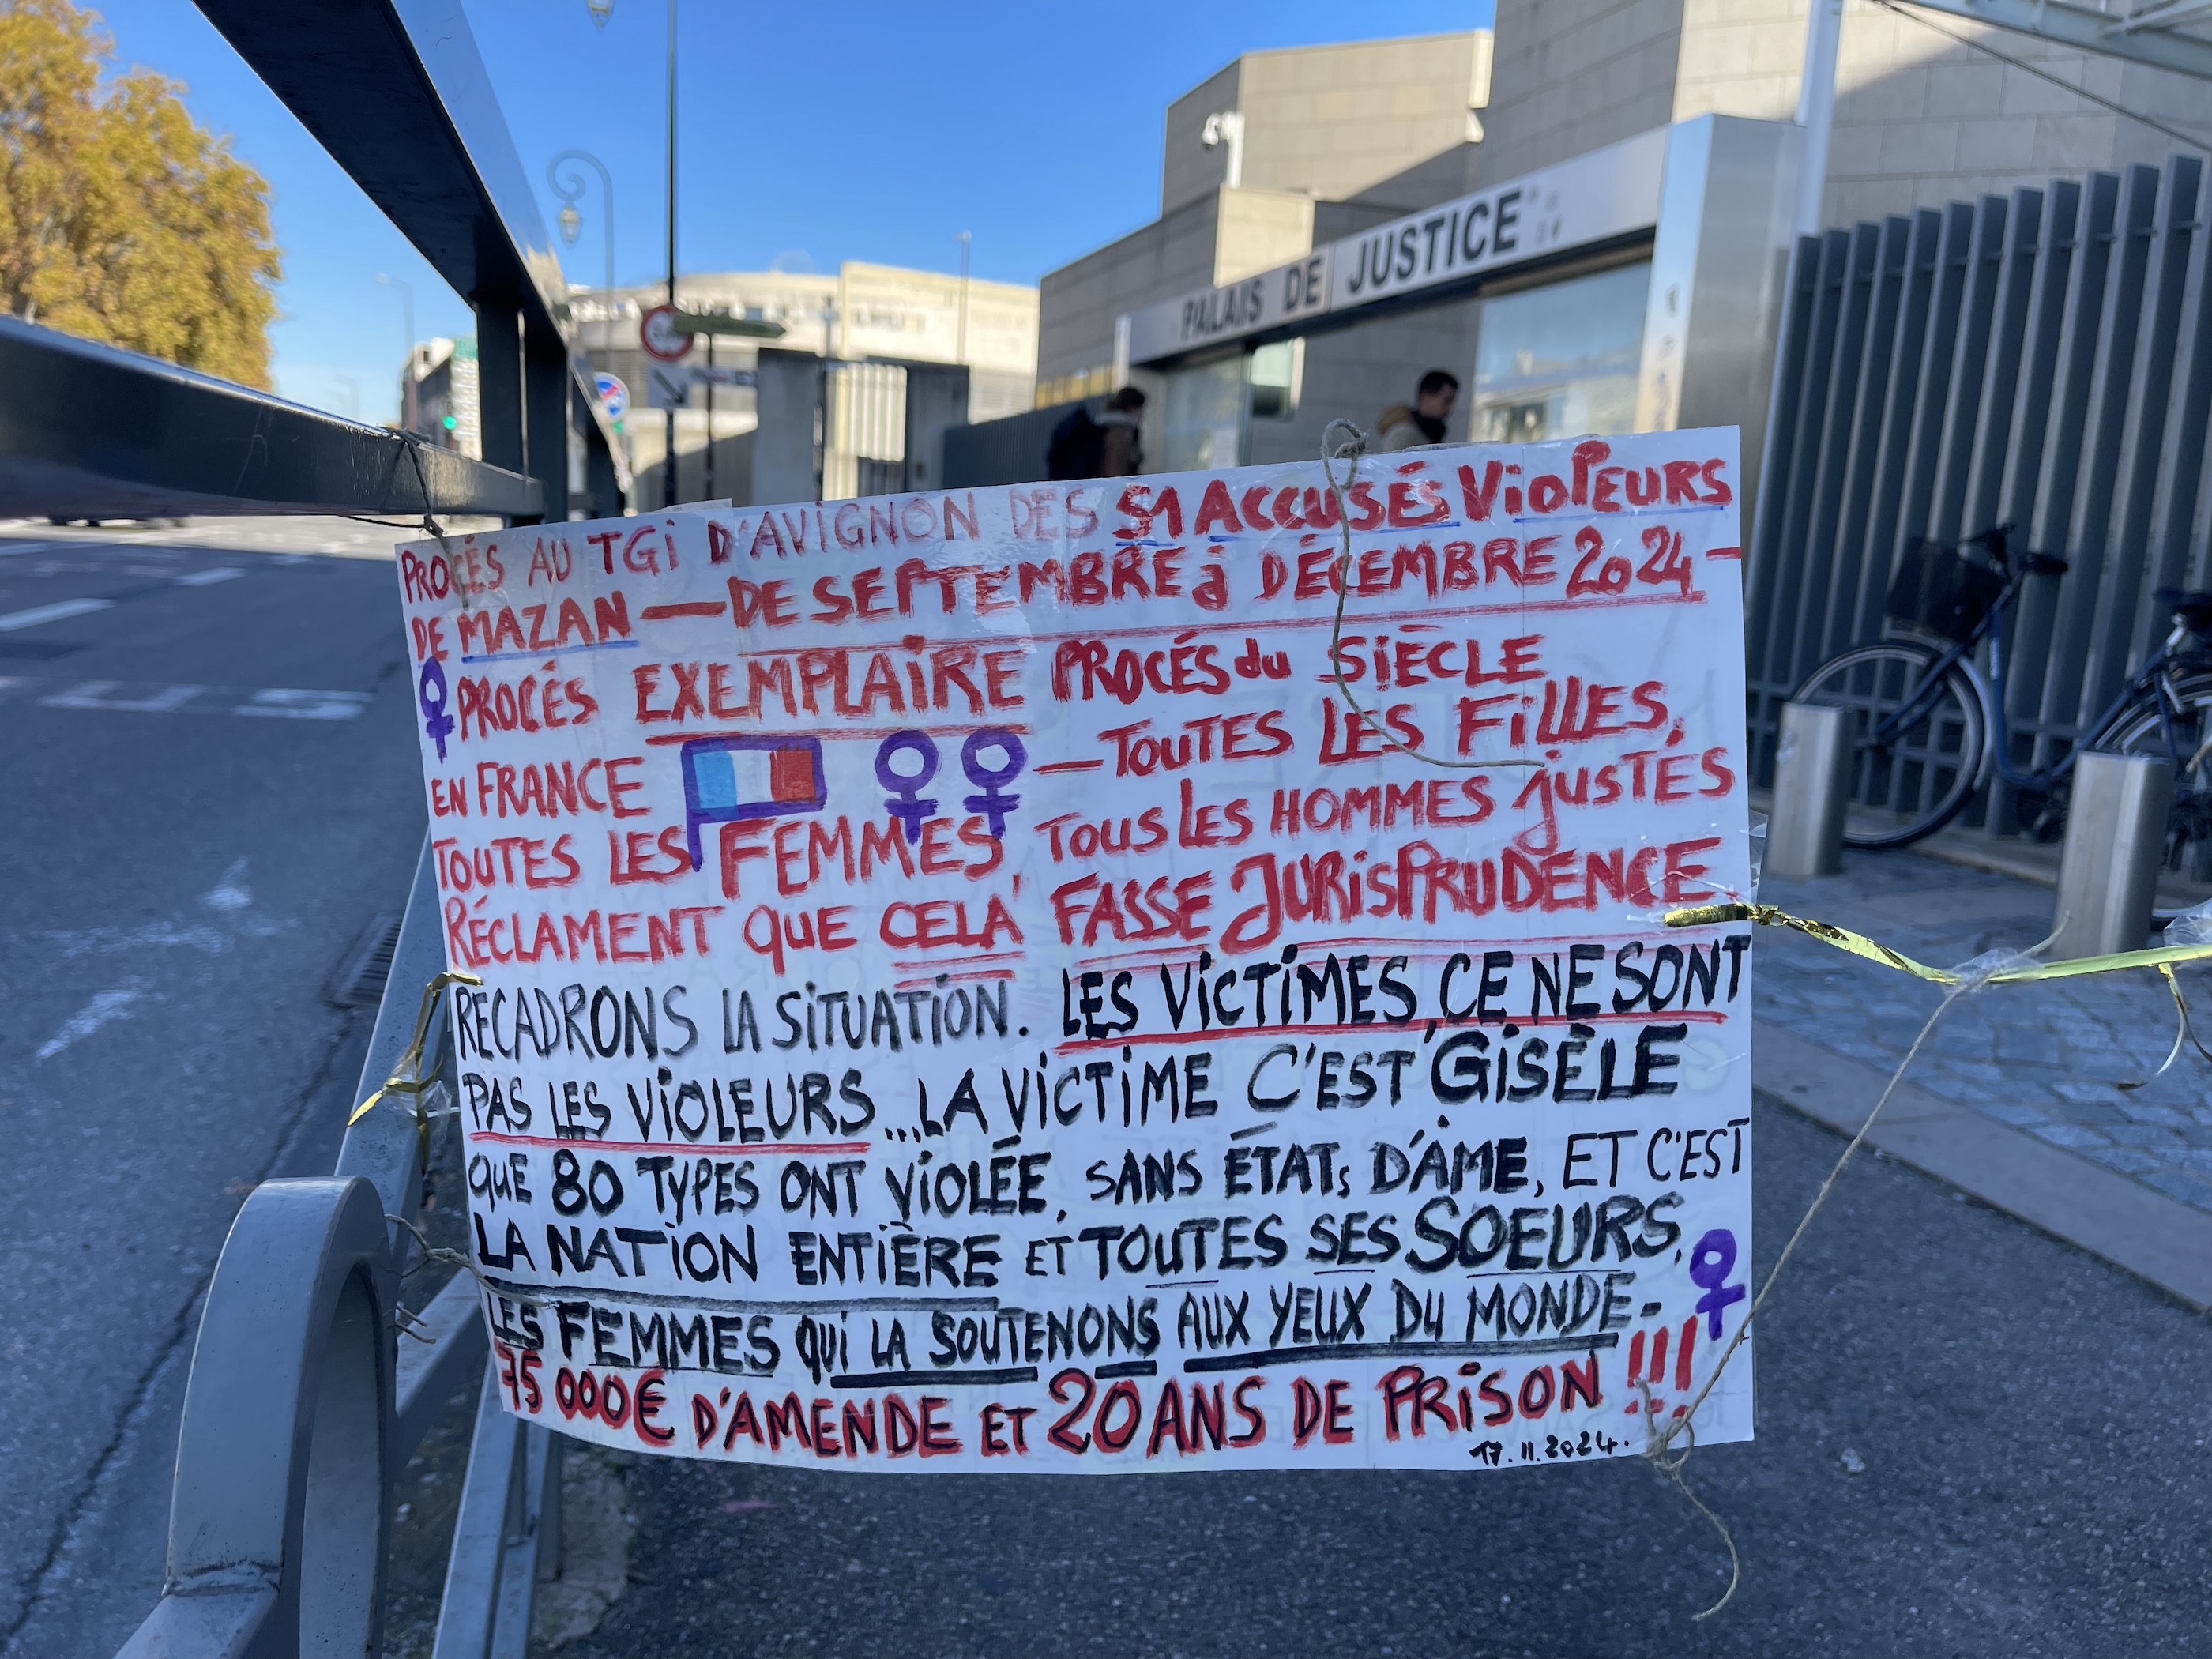 PALAIS DE JUSTICE
PROCÉS AU TGi D'AVIGNON DES 51 ACCUSÉS VioLEURS
DE MAZAN — DE SEPTEMBRE à DÉCEMBRE 2024 —
PROCÉS EXEMPLAiRE PROCÉS du SIÈCLE
EN FRANCE — TOUTES LES FiLLES,
TOUTES LES FEMMES, TOUS LES HOMMES jUSTES
RÉCLAMENT QUE CELA FASSE JURiSPRUDENCE.
RECADRONS LA SiTUATiON. LES ViCTiMES, CE NE SONT
PAS LES ViOLEURS... LA ViCTiME C'EST GiSÈLE
QUE 80 TYPES ONT ViOLÉE, SANS ÉTATs D'ÂME, ET C'EST
LA NATiON ENTiÈRE ET TOUTES SES SOEURS,
LES FEMMES qui LA SOUTENONS AUX YEUX DU MONDE-
75 000€ D'AMENDE ET 20 ANS DE PRiSON !!!
17.11.2024.